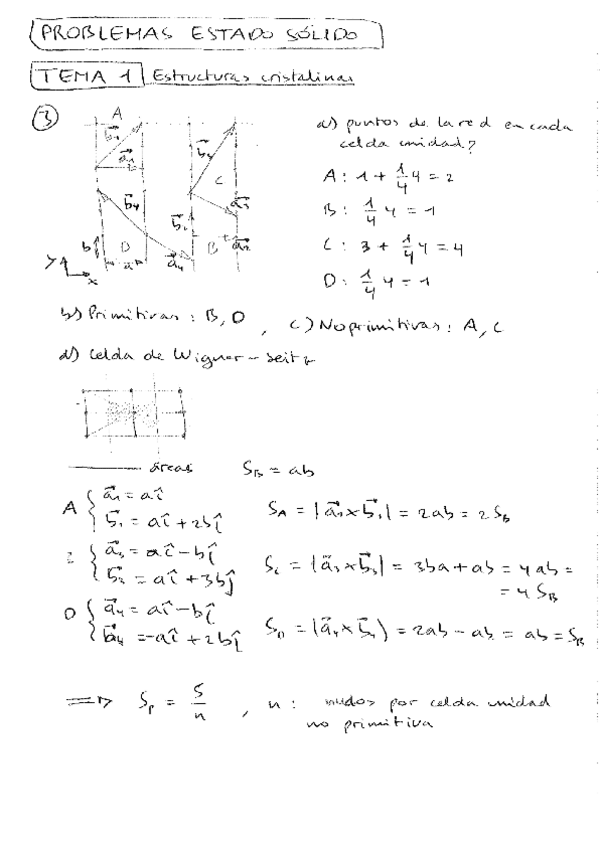 PROBLEMAS ESTADO SÓLIDO
TEMA 1 Estructuras cristalinas
3
A
a) puntos de la red en cada
celda unidad?
A: 1 + 1/4 4 = 2
B: 1/4 4 = 1
C: 3 + 1/4 4 = 4
D: 1/4 4 = 1
C
b⃗4
D
B
b
a
y
x
a⃗4
b) Primitivas: B, D, c) No primitivas: A, C
d) Celda de Wigner-Seitz
áreas S_B = ab
A { a⃗1 = aî
b⃗1 = aî + 2bĵ
S_A = |a⃗1 x b⃗1| = 2ab = 2 S_B
a⃗3 = aî - bĵ
= aî + 3bĵ
= |a⃗3 x b⃗3| = 3ba + ab = 4ab =
= 4 S_B
D { a⃗4 = aî - bĵ
b⃗4 = -aî + 2bĵ
S_D = |a⃗4 x b⃗4| = 2ab - ab = ab = S_B
⟹ S_p = S/n, n: nudos por celda unidad
no primitiva